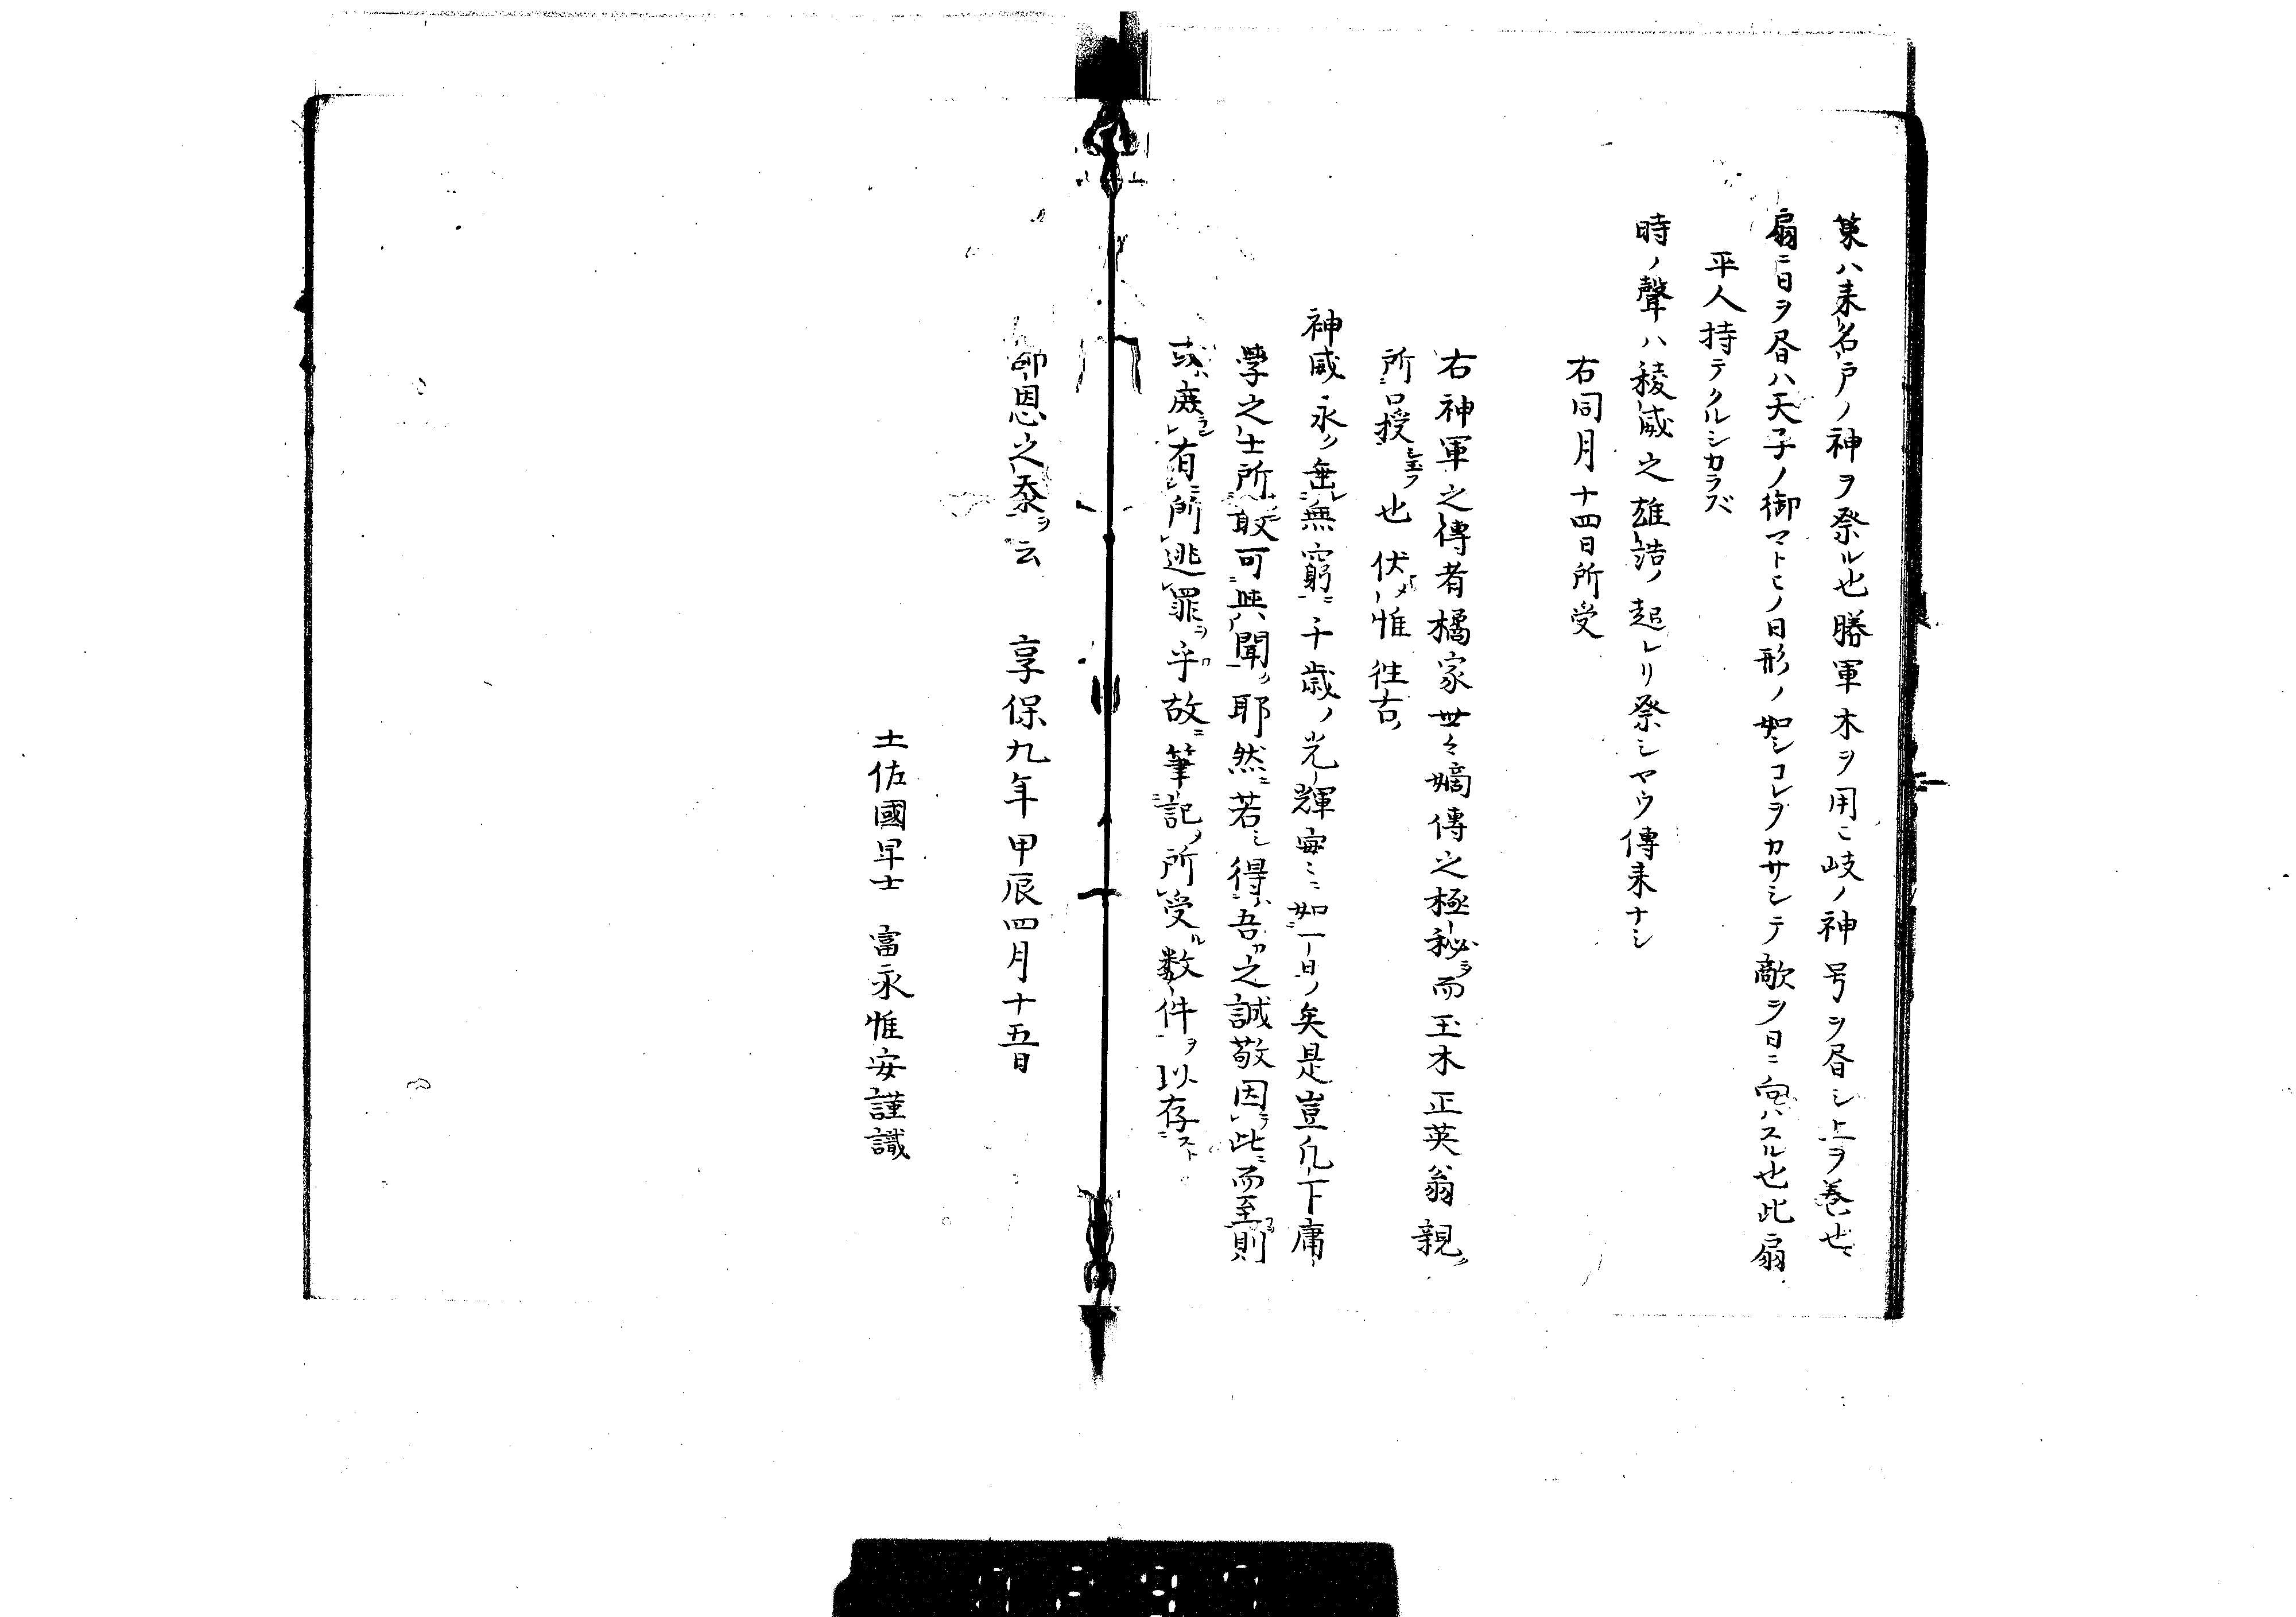 菓ハ来名戸ノ神ヲ祭ル也勝軍木ヲ用ニ岐ノ神号ヲ昏シ上ヲ巻也
扇ニ日ヲ昏ハ天子ノ御マトヒノ日形ノ如シコレヲカサシテ敵ヲ日ニ向ハスル也此扇
平人持テクルシカラズ
時ノ聲ハ稜威之雄誥ノ起レリ祭シヤウ傳来ナシ
右同月十四日所受
右神軍之傳者橘家世々嫡傳之極秘ヲ而玉木正英翁親
所口授玉フ也伏惟往古
神威永ク垂無窮ニ千歳ノ光輝如一日ノ矣是豈凡下庸
學之士所敢可與聞耶然ニ若シ得吾カ之誠敬因此ニ而至則
或庶有所逃罪ヲ乎故ニ筆記所受ル数件ヲ以存スト
命恩之忝ヲ云 享保九年甲辰四月十五日
土佐國早士 富永惟安謹識